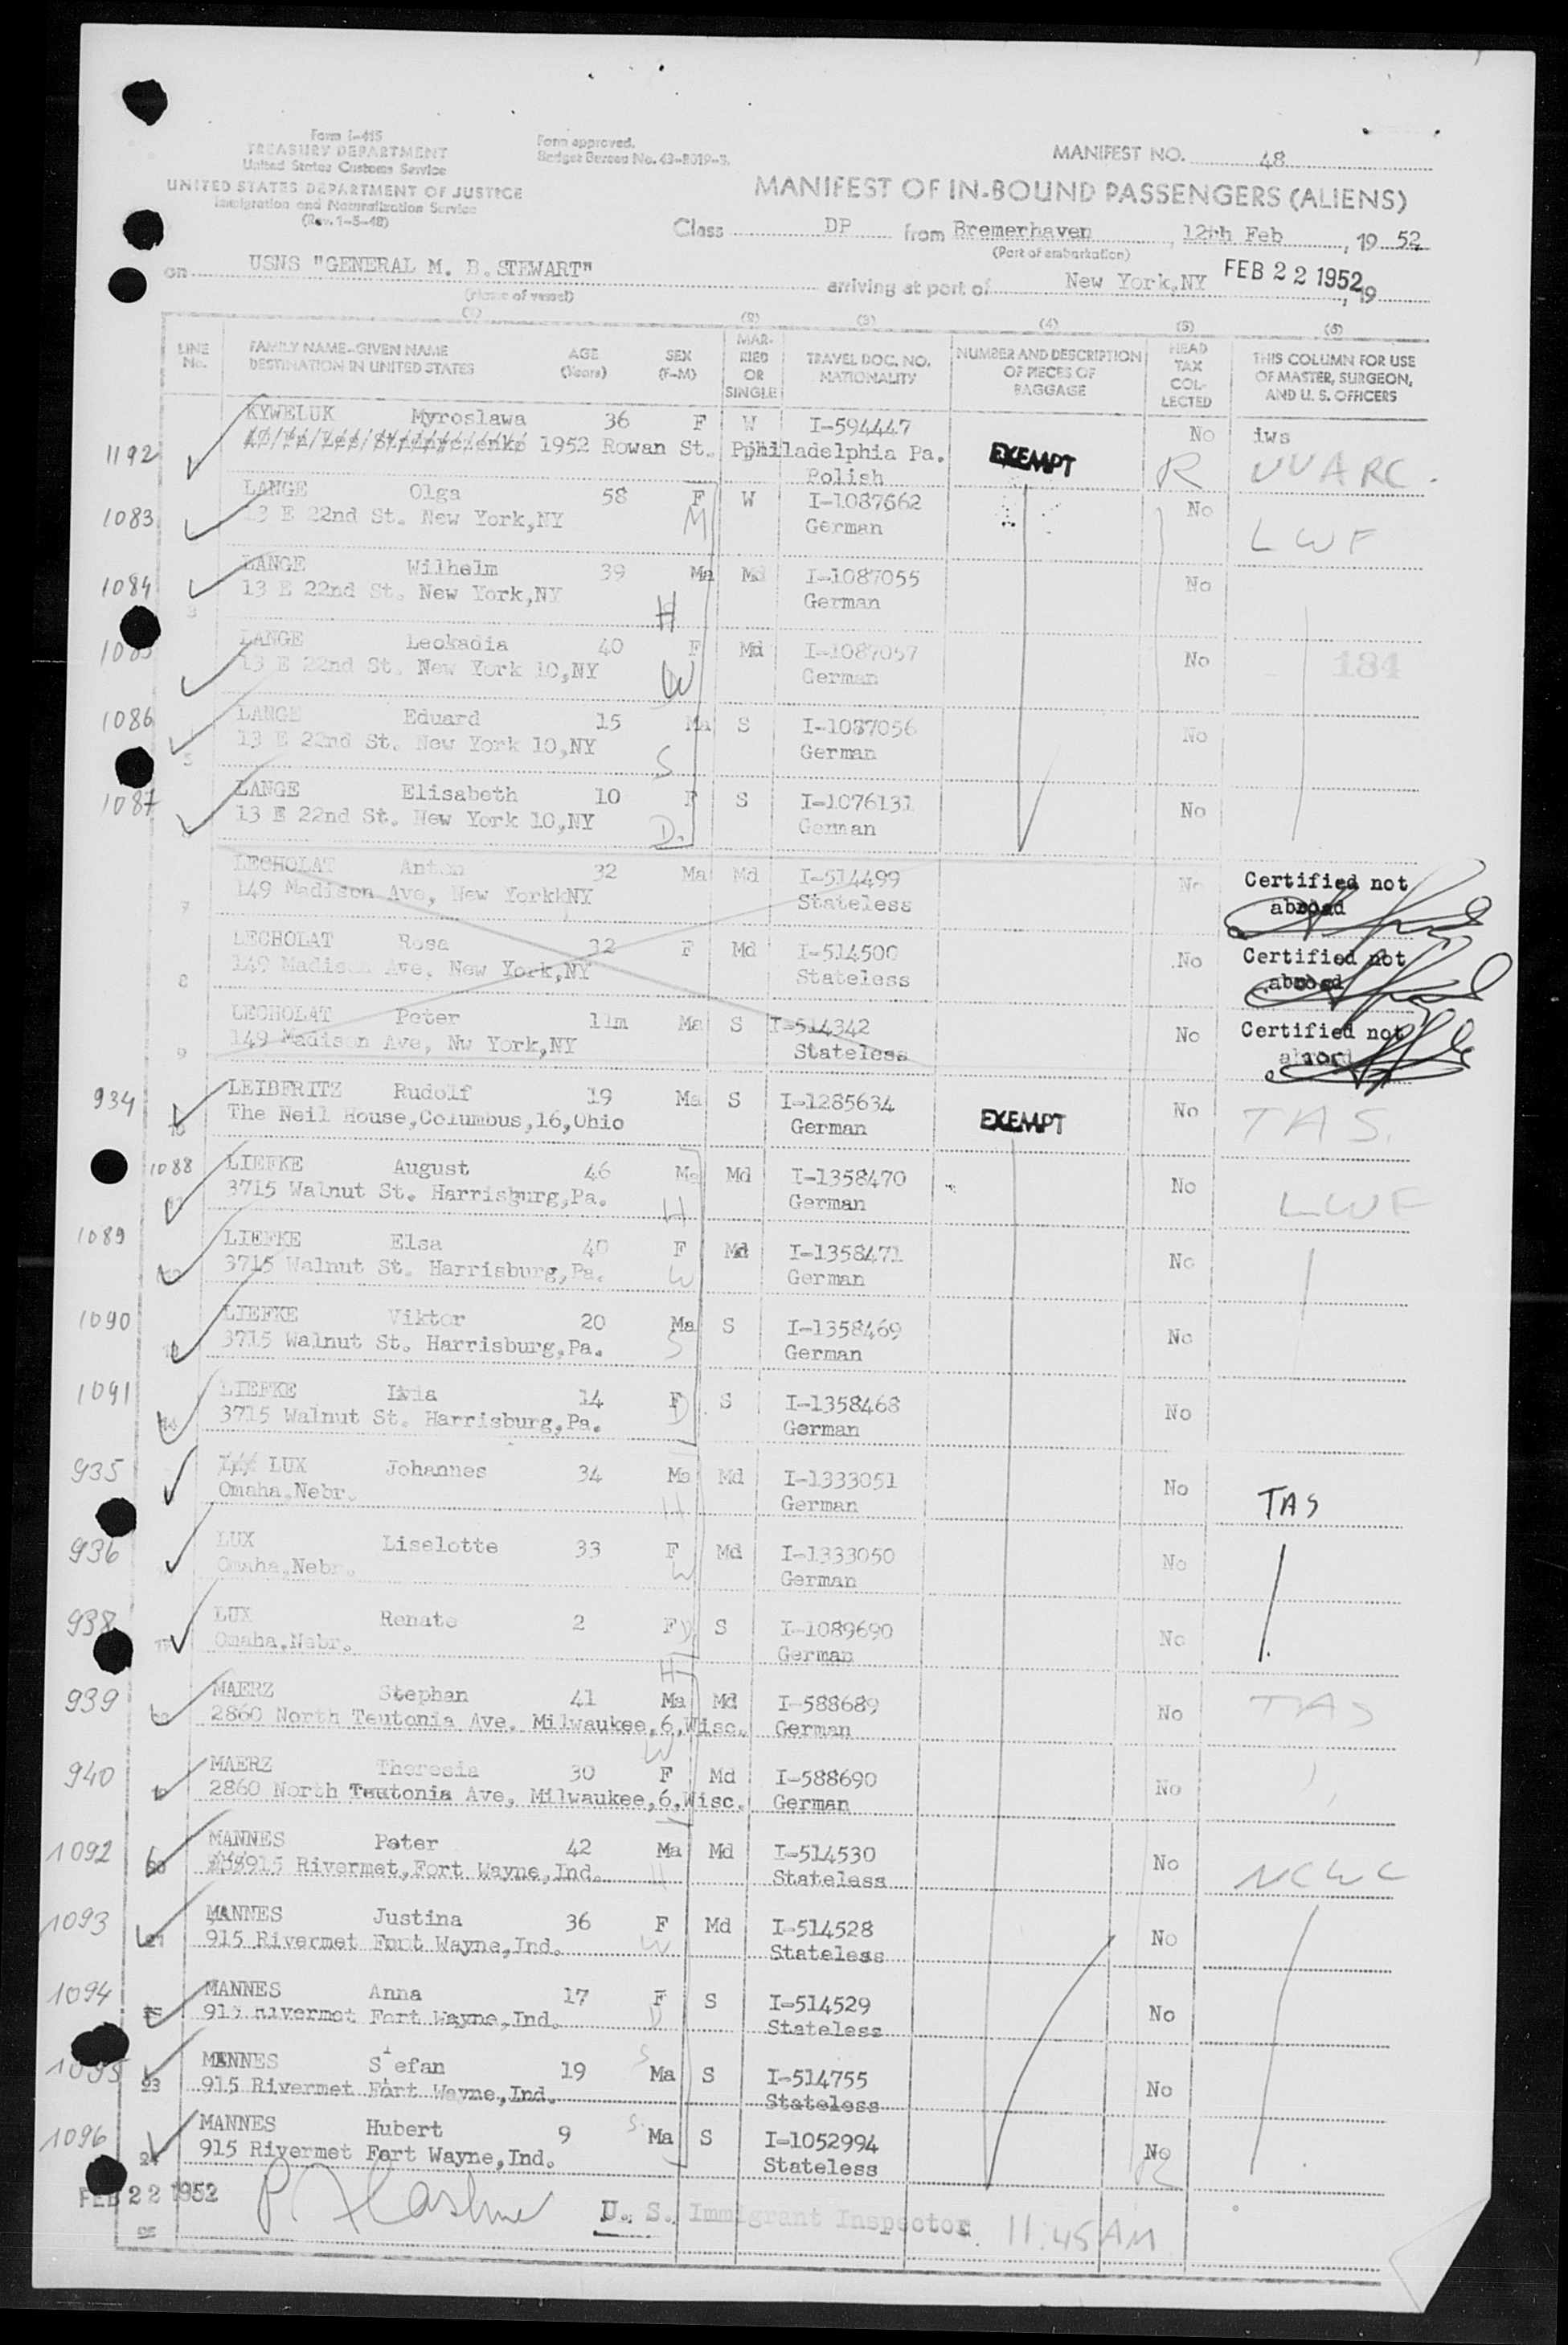 Form I-415
TREASURY DEPARTMENT
United States Customs Service
UNITED STATES DEPARTMENT OF JUSTICE
Immigration and Naturalization Service
(Rev. 1-5-48)
Form approved.
Budget Bureau No. 43-R019-3.
MANIFEST NO. 48
MANIFEST OF IN-BOUND PASSENGERS (ALIENS)
Class DP from Bremerhaven, 12th Feb, 19 52
(Port of embarkation)
on USNS "GENERAL M. B. STEWART" arriving at port of New York, NY FEB 22 1952, 19
(Name of vessel)
(1) (2) (3) (4) (5) (6)
LINE No. FAMILY NAME-GIVEN NAME DESTINATION IN UNITED STATES AGE (Years) SEX (F-M) MARRIED OR SINGLE TRAVEL DOC. NO. NATIONALITY NUMBER AND DESCRIPTION OF PIECES OF BAGGAGE HEAD TAX COLLECTED THIS COLUMN FOR USE OF MASTER, SURGEON, AND U. S. OFFICERS
KYWELUK Myroslawa 36 F W I-594447 No iws
1192 1952 Rowan St. Philadelphia Pa. EXEMPT R UUARC.
Polish
LANGE Olga 58 F W I-1087662 No
1083 13 E 22nd St. New York,NY M German LWF
LANGE Wilhelm 39 Ma Md I-1087055 No
1084 13 E 22nd St. New York,NY H German
3
LANGE Leokadia 40 F Md I-1087057 No
1085 13 E 22nd St. New York 10,NY W German 184
LANGE Eduard 15 Ma S I-1087056 No
1086 13 E 22nd St. New York 10,NY S German
5
LANGE Elisabeth 10 F S I-1076131 No
1087 13 E 22nd St. New York 10,NY D. German
LECHOLAT Anton 32 Ma Md I-514499 No Certified not
7 149 Madison Ave, New YorkkNY Stateless abroad
LECHOLAT Rosa 32 F Md I-514500 No Certified not
8 149 Madison Ave. New York,NY Stateless abroad
LECHOLAT Peter 11m Ma S I-514342 No Certified not
9 149 Madison Ave, Nw York,NY Stateless abroad
934 LEIBFRITZ Rudolf 19 Ma S I-1285634 No TAS.
10 The Neil House,Columbus,16,Ohio German EXEMPT
1088 LIEFKE August 46 Ma Md I-1358470 No
3715 Walnut St. Harrisburg,Pa. H German LWF
1089 LIEFKE Elsa 40 F Md I-1358471 No
3715 Walnut St. Harrisburg,Pa. W German
1090 LIEFKE Viktor 20 Ma S I-1358469 No
3715 Walnut St. Harrisburg,Pa. S German
1091 LIEFKE 14 F S I-1358468 No
14 3715 Walnut St. Harrisburg,Pa. D German
935 LUX Johannes 34 Ma Md I-1333051 No
Omaha,Nebr. H German TAS
936 LUX Liselotte 33 F Md I-1333050 No
Omaha,Nebr. W German
938 LUX Renate 2 F D. S I-1089690 No
Omaha,Nebr. German
939 MAERZ Stephan 41 H Ma Md I-588689 No TAS
2860 North Teutonia Ave. Milwaukee,6,Wisc. German
940 MAERZ Theresia 30 W F Md I-588690 No
2860 North Teutonia Ave, Milwaukee,6,Wisc. German
1092 MANNES Peter 42 Ma Md I-514530 No
20 915 Rivermet,Fort Wayne,Ind. H Stateless NCWC
1093 MANNES Justina 36 F Md I-514528 No
21 915 Rivermet Fort Wayne,Ind. W Stateless
1094 MANNES Anna 17 F S I-514529 No
915 Rivermet Fort Wayne,Ind. D Stateless
1095 MANNES Stefan 19 S Ma S I-514755 No
23 915 Rivermet Fort Wayne,Ind. Stateless
1096 MANNES Hubert 9 S. Ma S I-1052994 No
24 915 Rivermet Fort Wayne,Ind. Stateless R
FEB 22 1952
U. S. Immigrant Inspector 11:45 AM